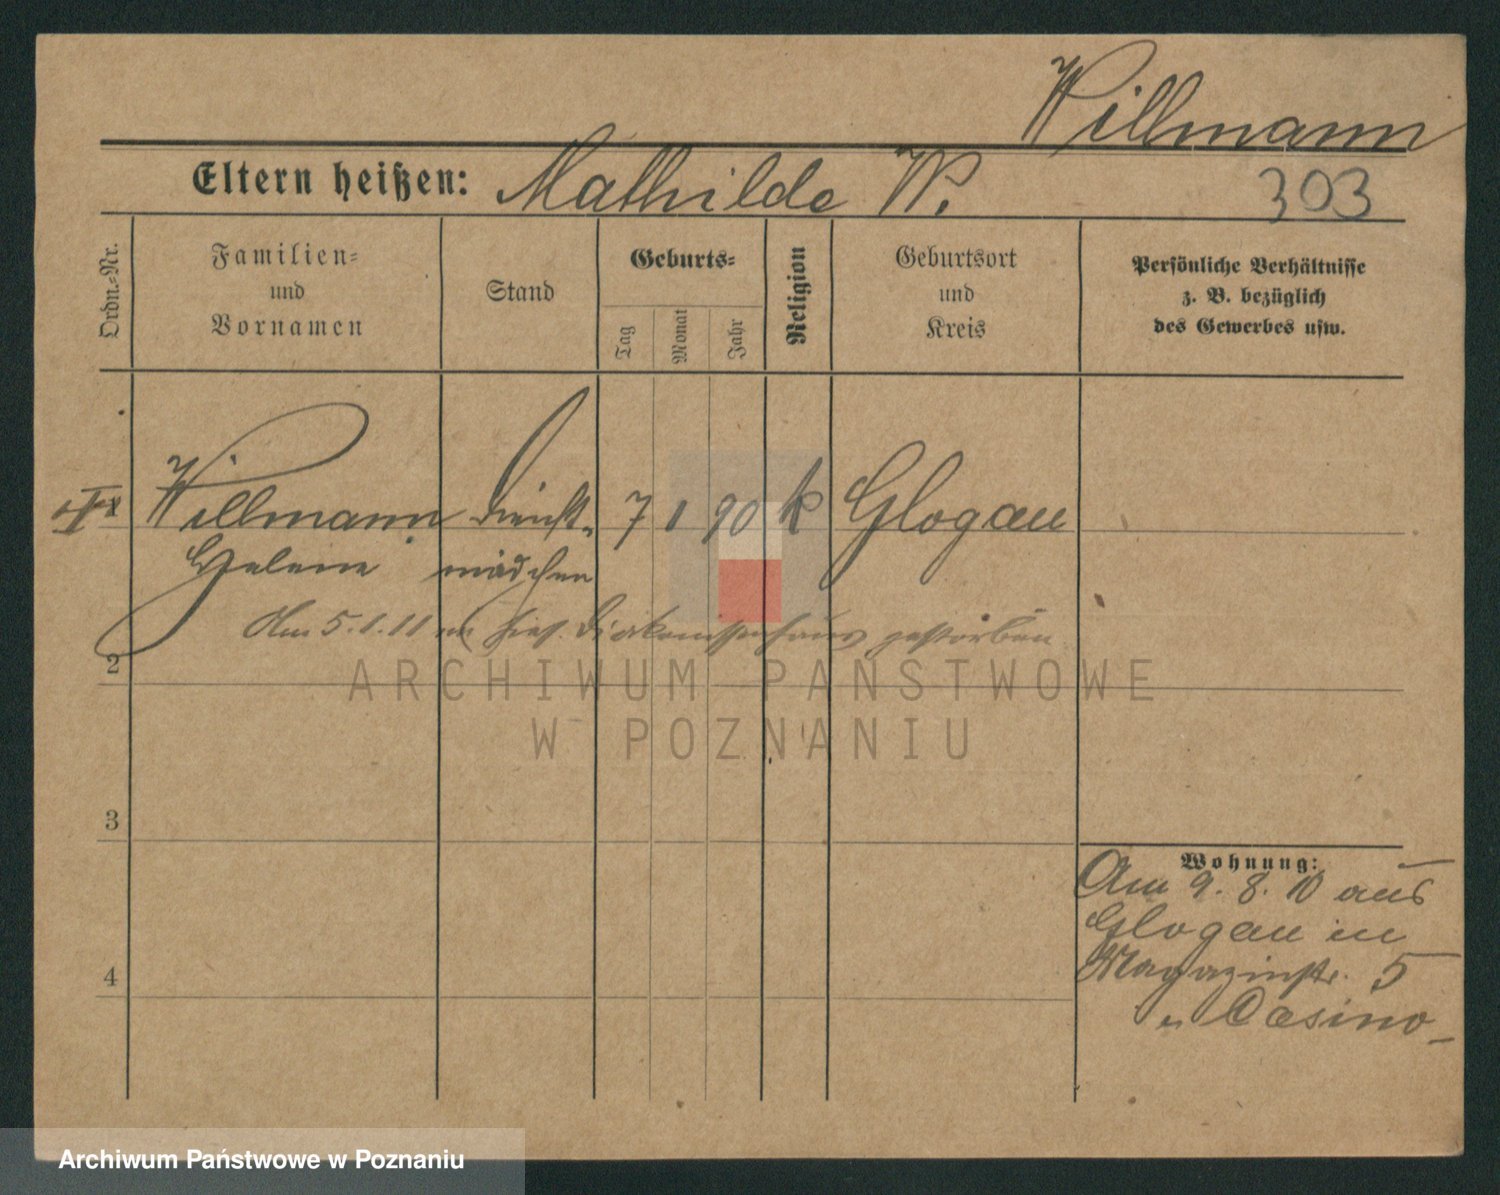 Willmann
Eltern heißen: Mathilde W.
303
Ordn.-Nr.
Familien-
und
Vornamen
Stand
Geburts-
Tag
Monat
Jahr
Religion
Geburtsort
und
Kreis
Persönliche Verhältnisse
z. B. bezüglich
des Gewerbes usw.
Willmann Dienst- 7 1 90 k Glogau
Helene mädchen
Am 5.1.11 im hies. Diakonissenhaus gestorben
2
3
4
Wohnung:
Am 9. 8. 10 aus
Glogau in
Magazinstr. 5
Casino
ARCHIWUM PAŃSTWOWE
W POZNANIU
Archiwum Państwowe w Poznaniu